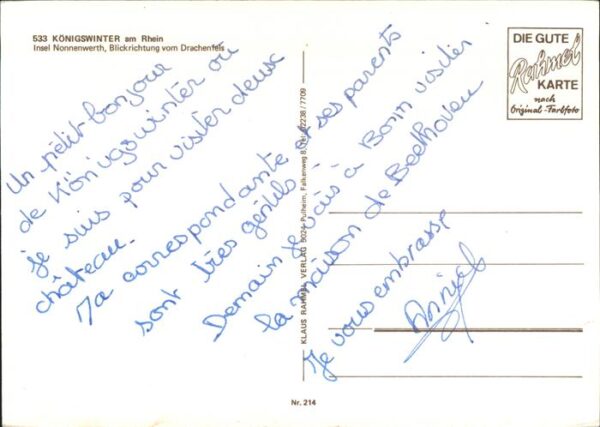 533 KÖNIGSWINTER am Rhein
Insel Nonnenwerth, Blickrichtung vom Drachenfels
DIE GUTE
Rahmel
KARTE
nach
Original-Farbfoto
Un petit bonjour
de Königswinter où
je suis pour visiter deux
château.
Ma correspondante et ses parents
sont très gentils.
Demain je vais à Bonn visiter
la maison de Beethoven
Je vous embrasse
KLAUS RAHMEL VERLAG 5024 Pulheim, Falkenweg 8, Tel. 02238/7709
Nr. 214